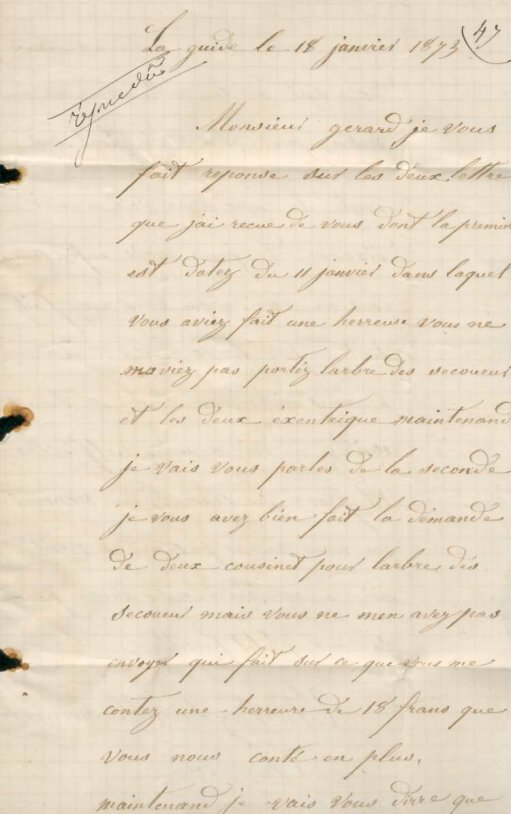 La guide le 18 janvier 1873
47
repondu
Monsieur gerard je vous
fait reponse sur les deux lettre
que jai recue de vous dont la premier
est datez du 11 janvier dans laquel
vous aviez fait une herreure vous ne
maviez pas portéz larbre des secoueur
et les deux éxentrique maintenand
je vais vous parles de la seconde
je vous avez bien fait la demande
de deux cousinet pour larbre des
secoueur mais vous ne men avez pas
envoyer qui fait sur ce que vous me
contez une herreure de 18 frans que
vous nous conté en plus,
maintenand je vais vous dirre que